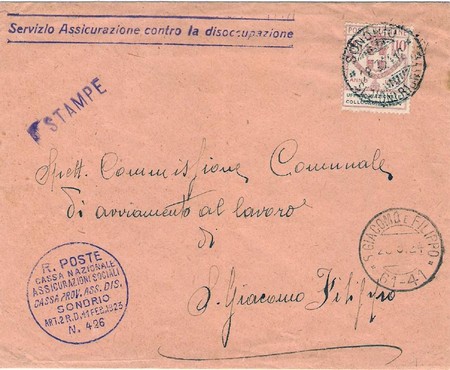 Servizio Assicurazione contro la disoccupazione
STAMPE
10
Spett. Commissione Comunale
di avviamento al lavoro
di
S. Giacomo Filippo
S. GIACOMO E FILIPPO
61-41
R. POSTE
CASSA NAZIONALE
ASSICURAZIONI SOCIALI
CASSA PROV. ASS. DIS.
SONDRIO
ART. 2 R.D. 11 FEB. 1923
N. 426